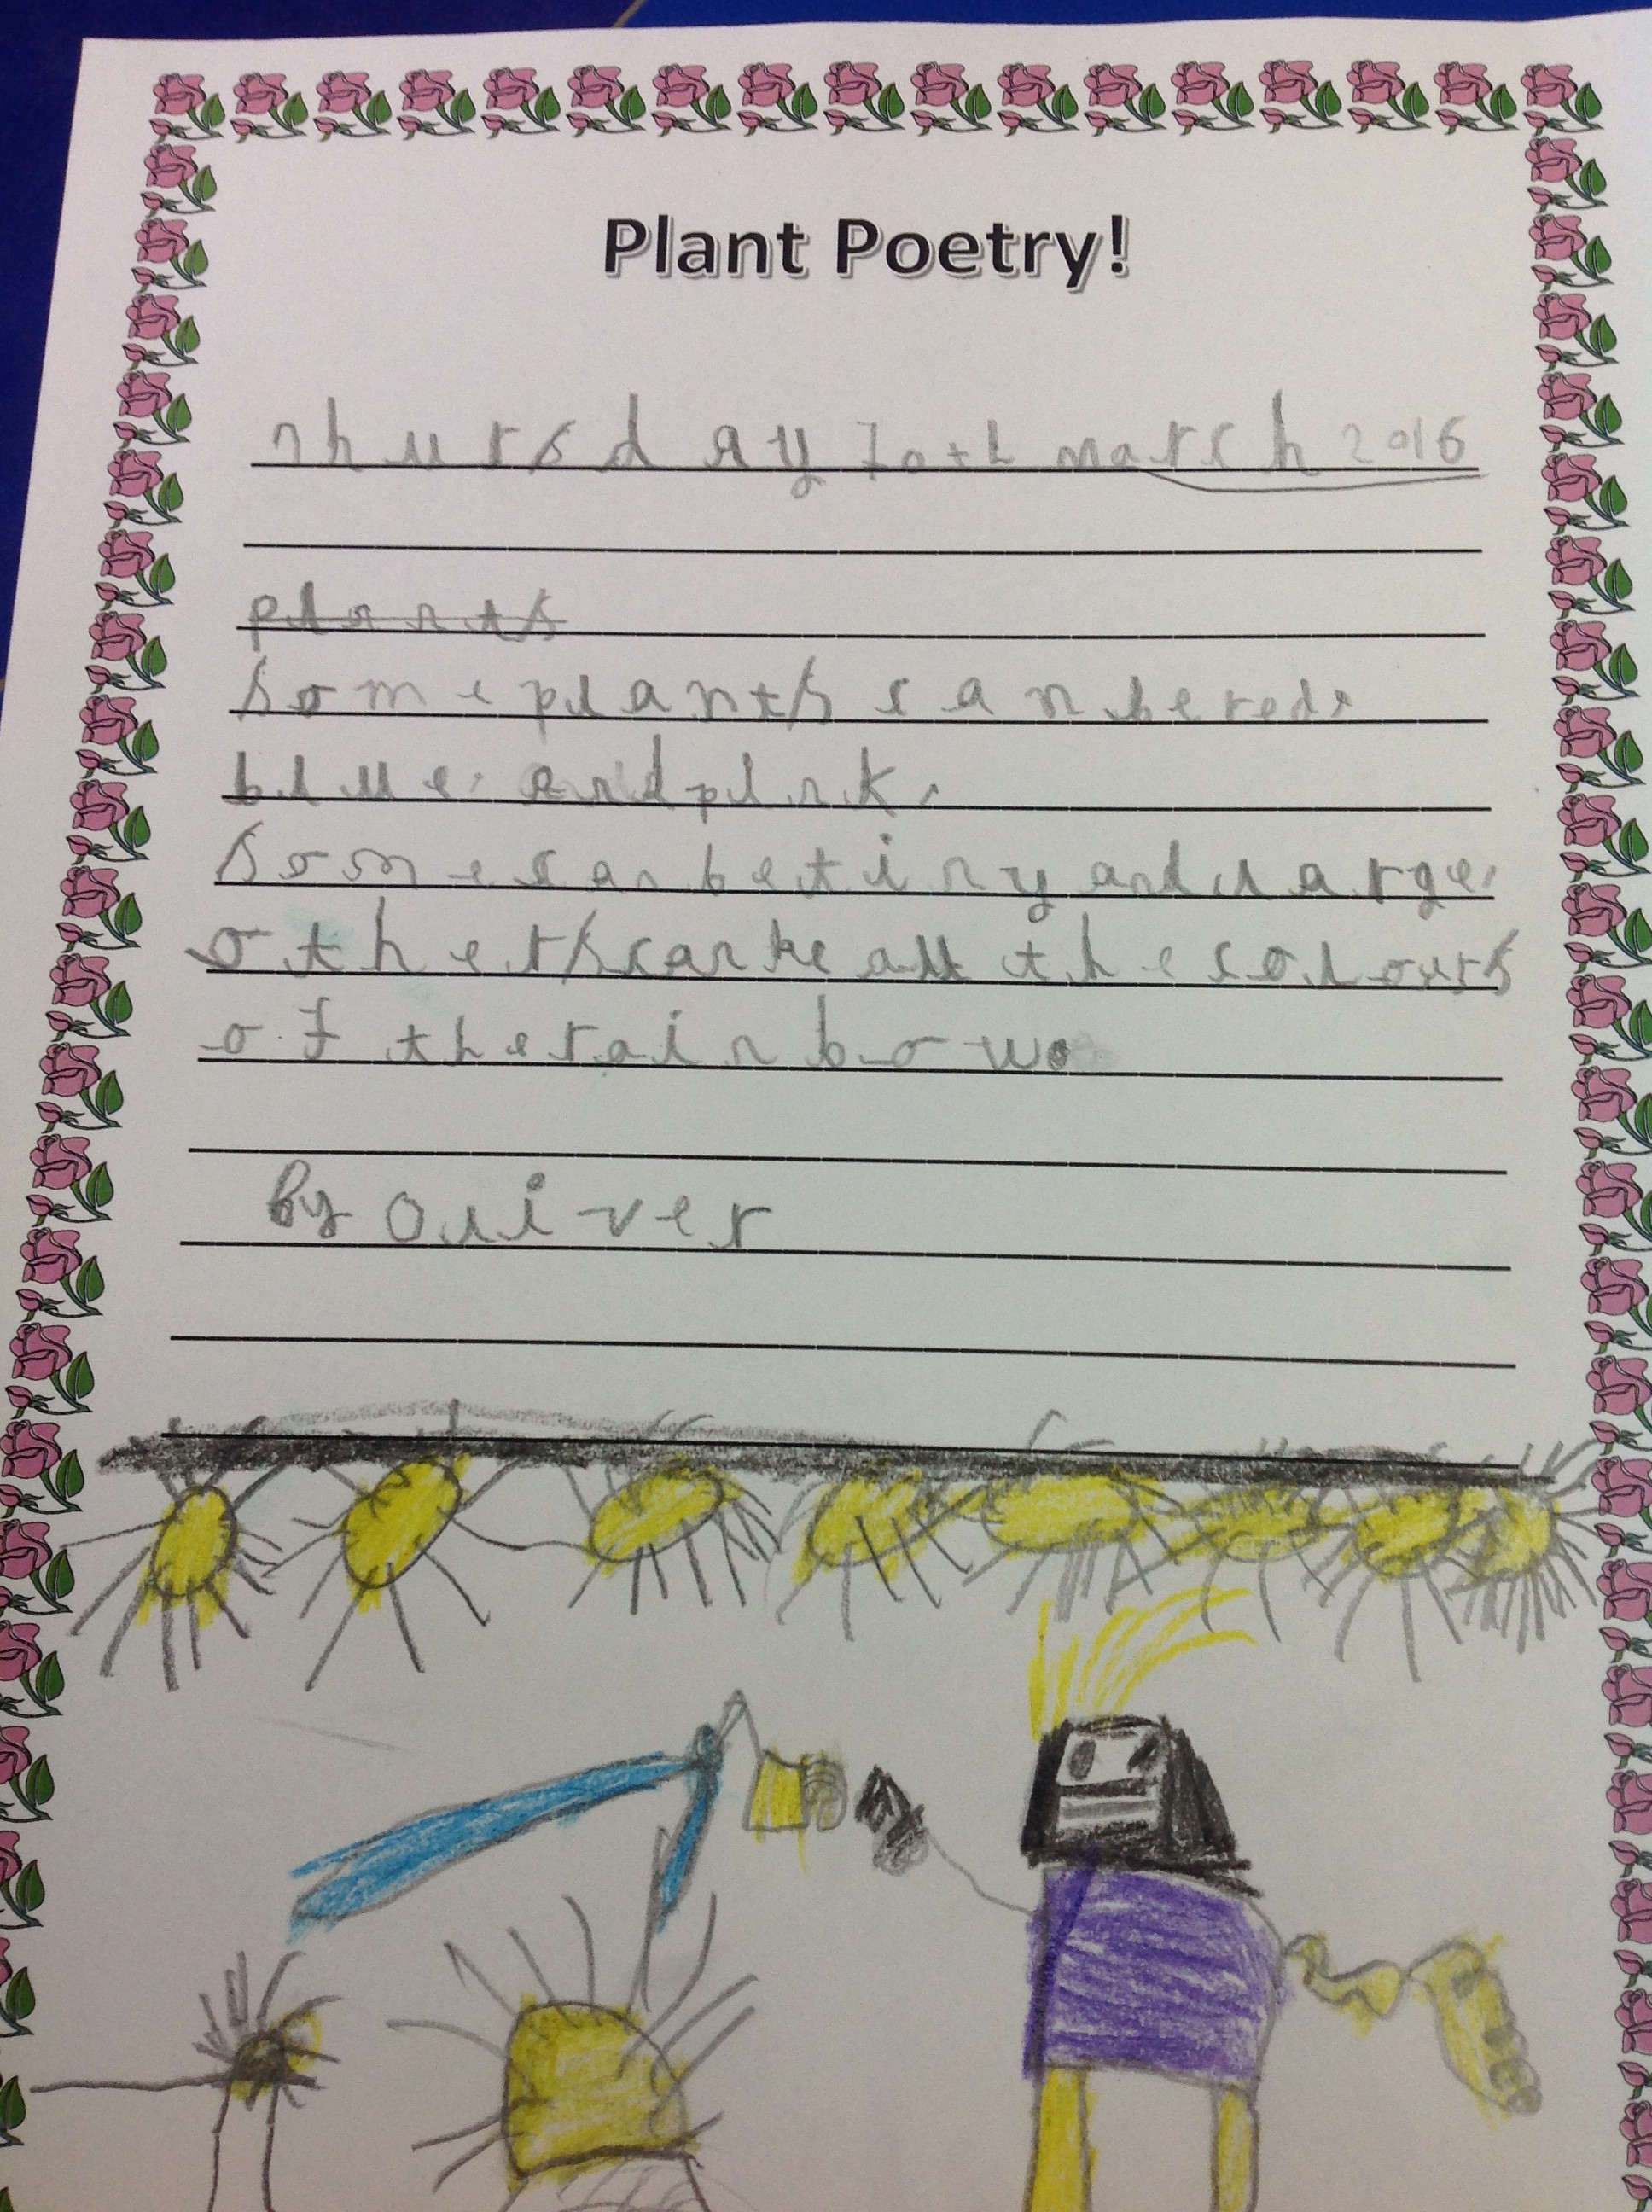 Plant Poetry!
Thursday 10th march 2016
plants
Some plants can be red,
blue, and pink.
Some can be tiny and large,
others can be all the colours
of the rainbow.
By Oliver